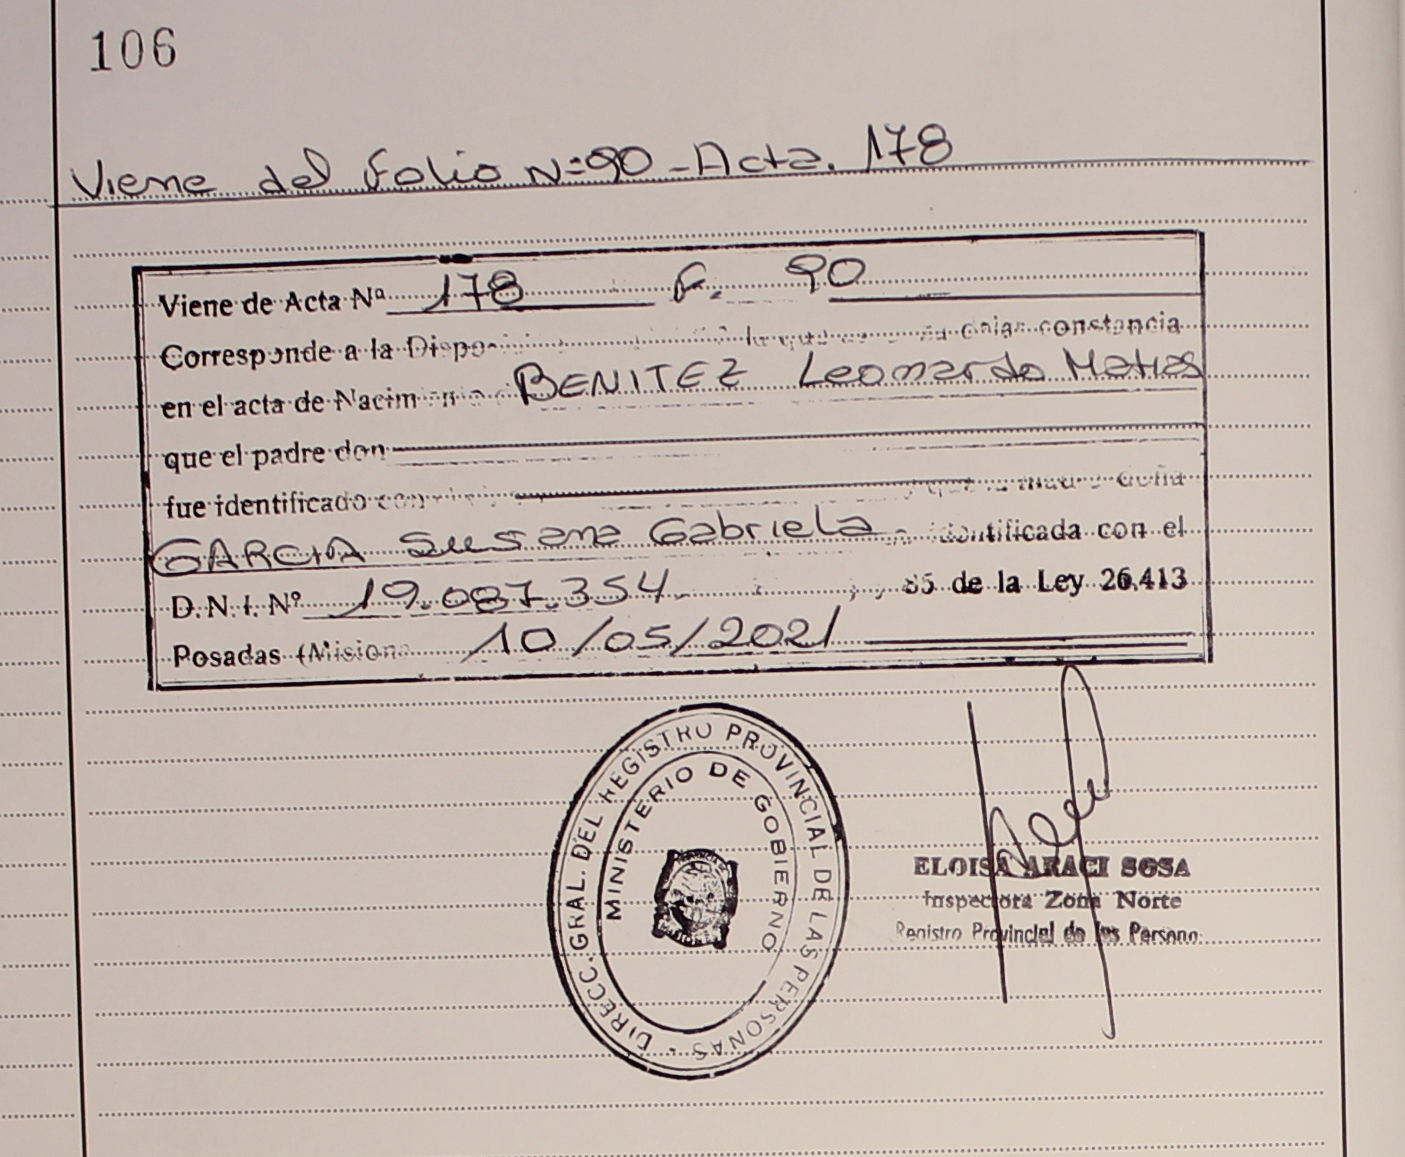 106
Viene del Folio N=90 - Acta. 178
Viene de Acta Nº 178 F. 90
Corresponde a la Dispo constancia
en el acta de Nacim BENITEZ Leonardo Matias
que el padre don
fue identificado con
GARCIA Susana Gabriela identificada con el
D.N.I. Nº 19.087.354. 85 de la Ley 26.413
Posadas (Mision 10/05/2021
DIRECC. GRAL. DEL REGISTRO PROVINCIAL DE LAS PERSONAS -
MINISTERIO DE GOBIERNO
ELOISA ARACI SOSA
Inspectora Zona Norte
Registro Provincial de las Persona